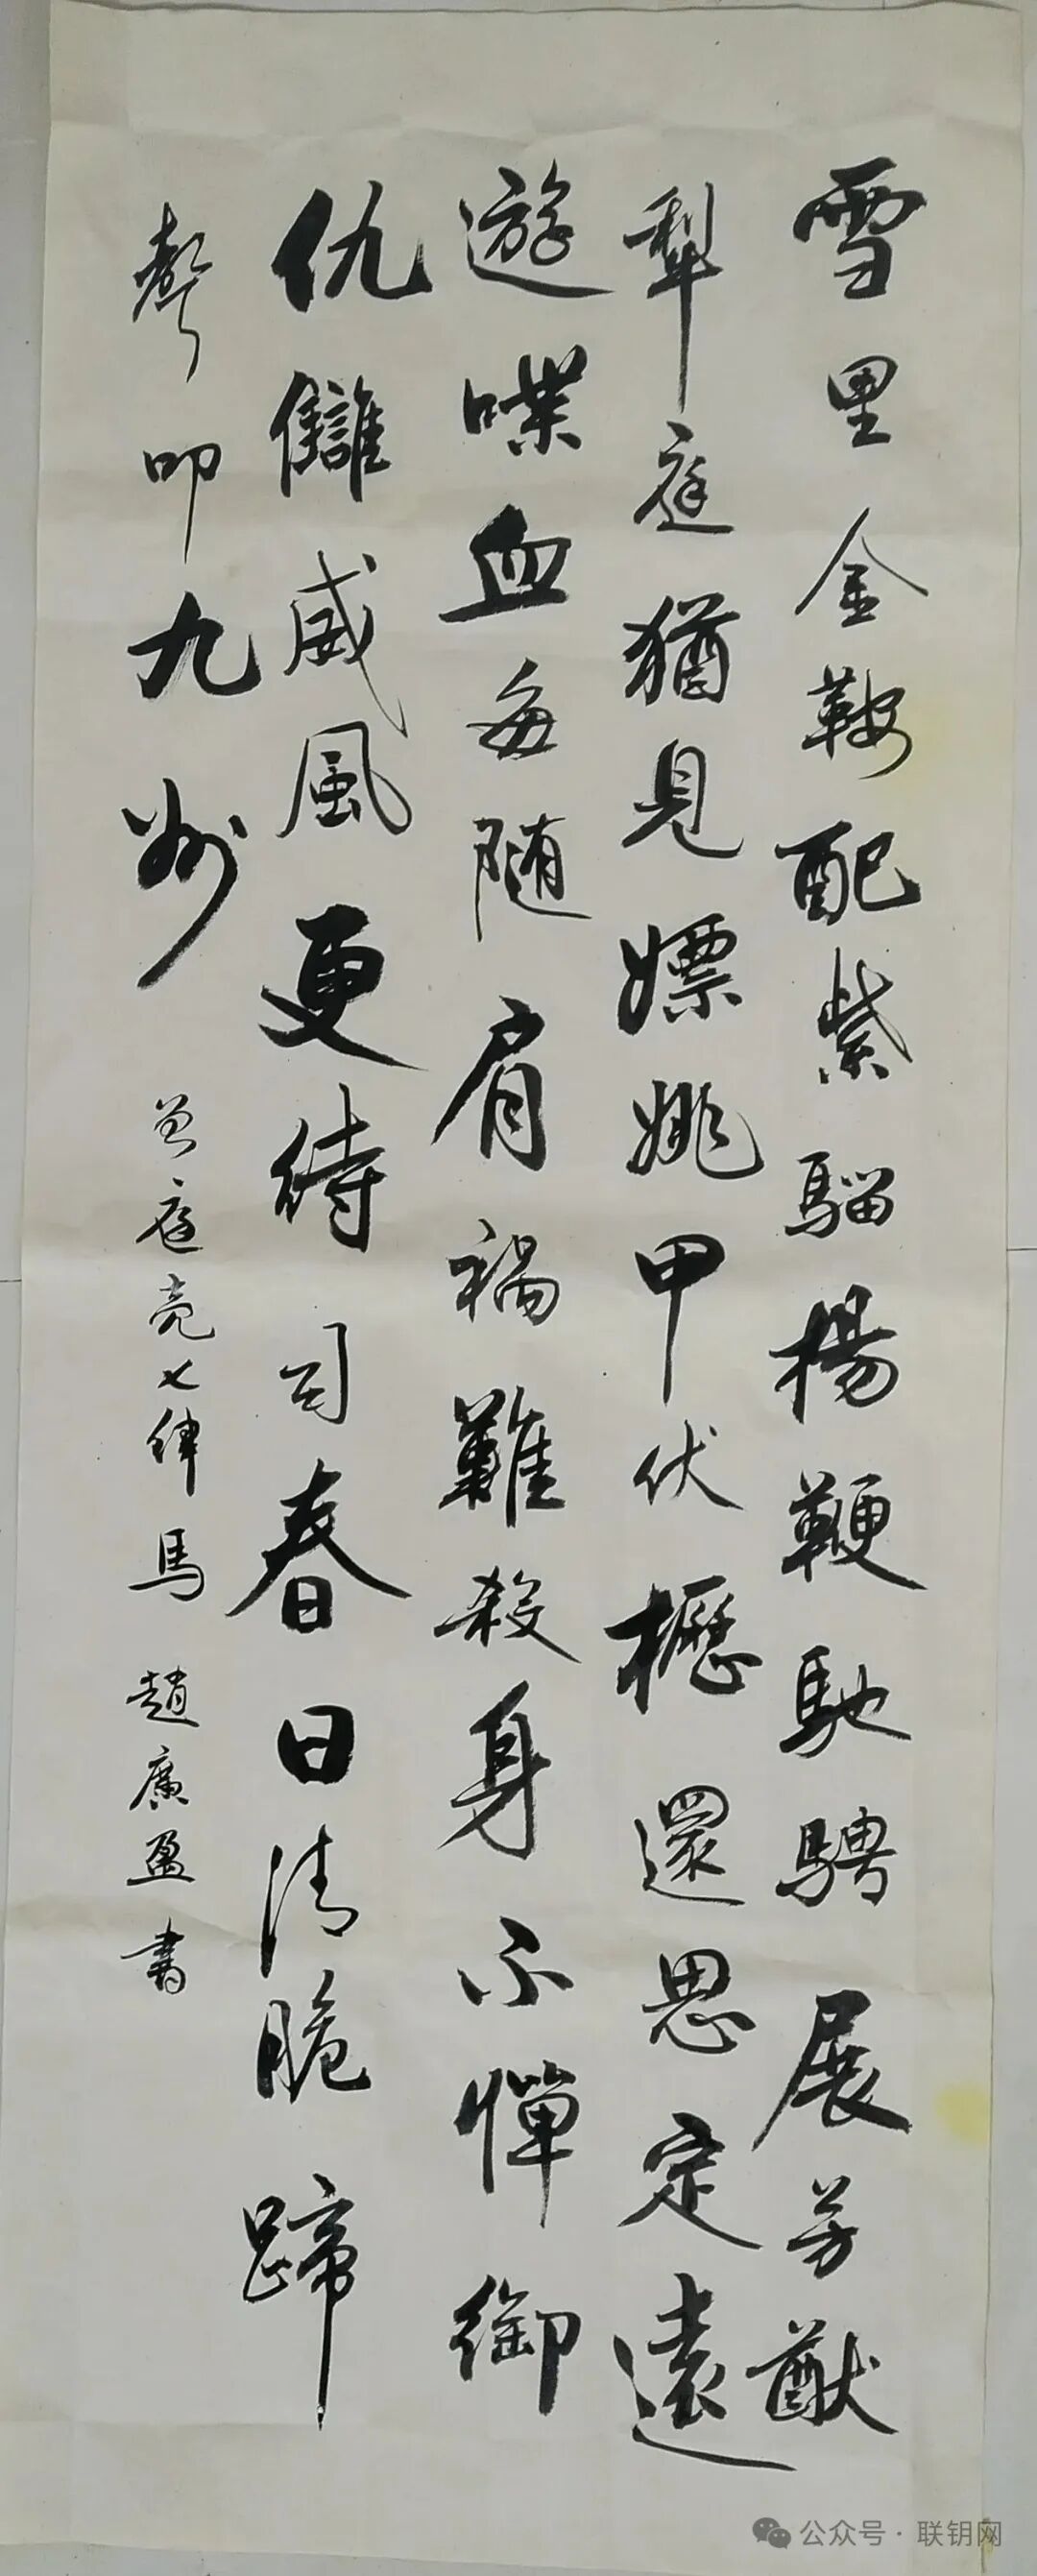 雪里金鞍配紫騮楊鞭馳騁展芳猷
犁庭猶見嫖姚甲伏櫪還思定遠
遊喋血每随肩禍難殺身不憚御
仇讎威風更待司春日清脆蹄
聲叩九州 曾庭亮七律馬 趙廣盈書
公众号·联钥网